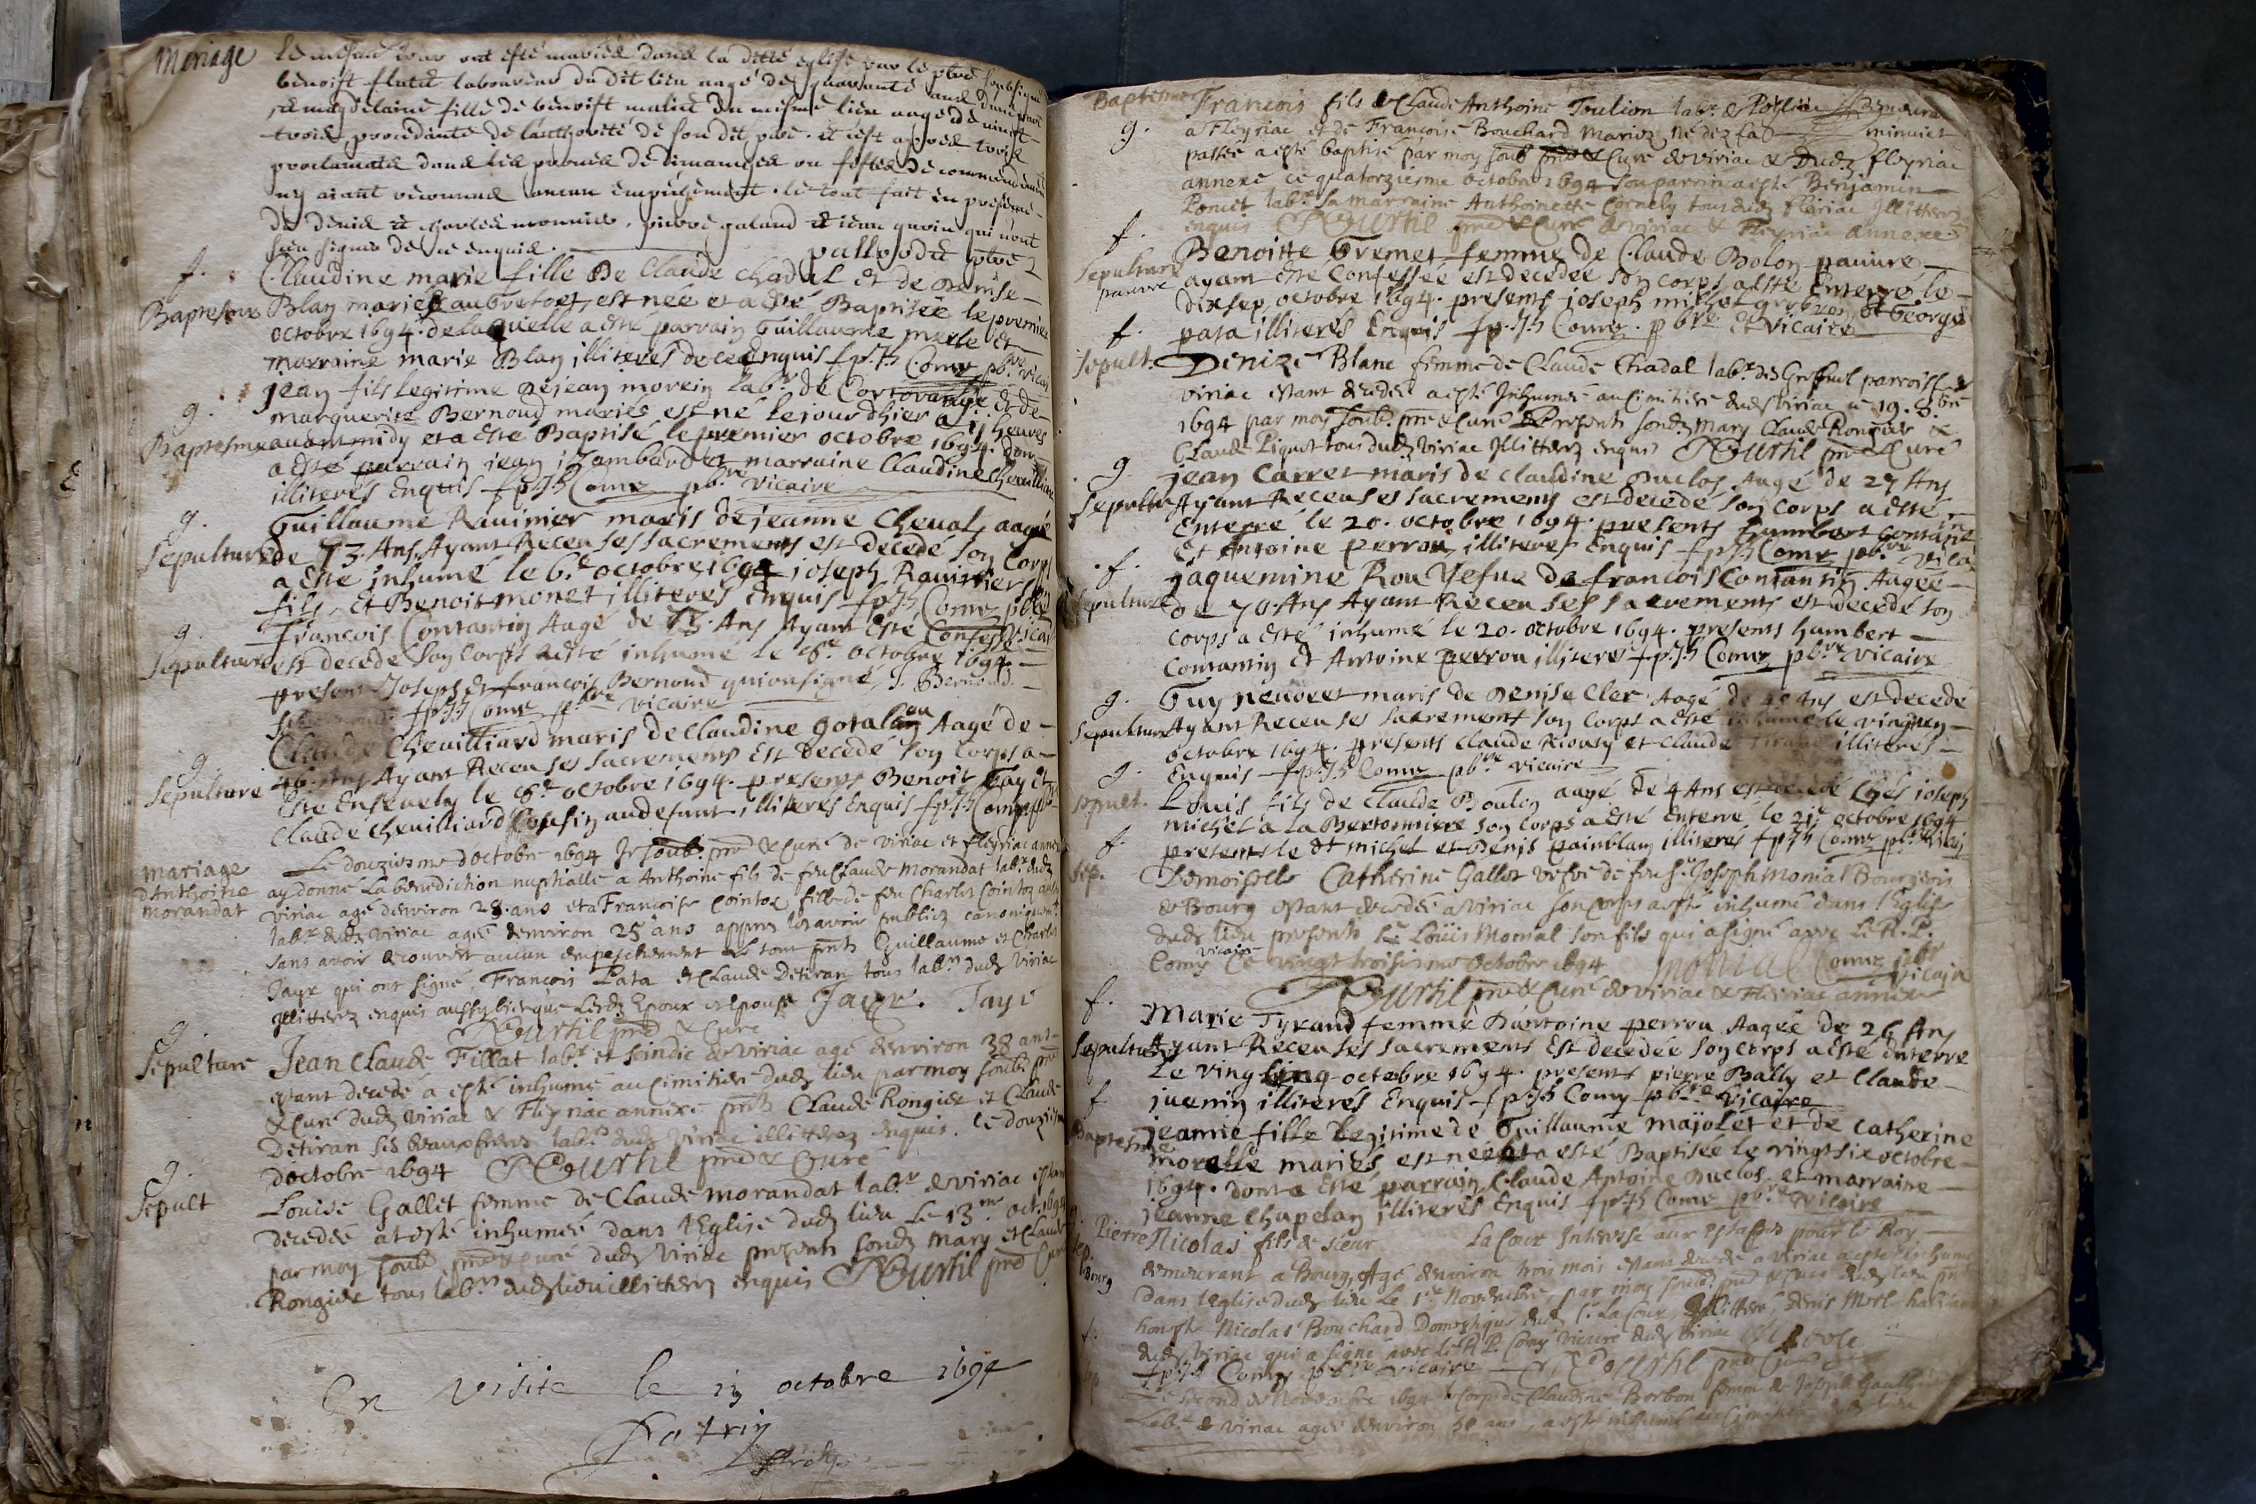 Mariage
Le mesme jour ont esté mariés dans la ditte eglise par le pbre soubsigné
benoist laboureur du dit lieu aagé de quarante ans
et magdelaine fille de benoist du mesme lieu aagé de vingt
trois procedante de l'authorité de son dit pere. et cest apres trois
proclamates dans les prones de dimanches ou festes de commendement
ny aiant reconnus aucun empechement. le tout fait en presence
de denis et charles monnier, pierre galand et jean gurin qui n'ont
sceu signer de ce enquis.
f.
Baptesme
Claudine marie fille De Claude Chadal Et de Denise
Blan mariés aubretoet, est née et a esté Baptisée le premier
octobre 1694. de laquelle a esté parrain Guillaume merle et
marraine marie Blan illiterés de ce enquis fp. Jh Comr pbre vicai
g.
Baptesme
jean fils legitime de jean morein labr de Cortovange et de
marguerite Bernoud mariés est né le jour dhier a 11 heures
avant midy et a esté Baptisé le premier octobre 1694. dont
a esté parrain jean jambard et marraine Claudine Chevilliard
illiterés Enquis fp. Jh Comr pbre vicaire
g.
Sepulture
Guillaume Ravinier maris de jeanne Cheval, aagé
de 73. Ans, Ayant Receu ses sacrements est decedé son Corps
a esté inhumé le 6.e octobre 1694 joseph Ravinier son
fils, et Benoit monet illiterés Enquis fp. Jh Comr pbre
g.
Sepulture
francois Contantin Aagé de 73. Ans Ayant Esté Confessé
est decedé son Corps a esté inhumé le 8.e octobre 1694
presents Joseph et francois Bernoud qui ont signé, J. Bernoud
fp. Jh Comr pbre vicaire
g
Sepulture
Claude Chevilliard maris de Claudine gotalan Aagé de
Ans Ayant Receu ses sacrements Est decedé son Corps a
Esté Ensevely le 8.e octobre 1694. presents Benoit Et
Claude Chevilliard Cousin au defunt, illiterés Enquis fp. Jh Comr
mariage
d'Anthoine
morandat
Le douziesme d'octobre 1694 Je soub. pre & Curé de viriac et fleyriac annexe
ay donné La benediction nuptialle a Anthoine fils de feu Claude Morandat labr dudt
viriac agé denviron 28 ans et a Francoise Cointox fille de feu Charles Cointox
labr dudt viriac agée denviron 25 ans appres les avoir publiez canoniquemt
sans avoir decouvert aucun empeschement Le tout pnts Guillaume et Charles
Jayr qui ont signé, Francois Pata et Claude Detiran tous labrs dudt viriac
illitterez enquis aussy bien que Lesdt Epoux et Epouse Jayr. Jayr
pre & Curé
g
Sepulture
Jean Claude Fillat labr et scindic de viriac agé denviron 38 ans
estant decedé a esté inhumé au cimitiere dudt lieu par moy soubs. pre
& Curé dudt viriac & Fleyriac annexe pnts Claude Rongier et Claude
Detiran ses beaux freres labrs dudt viriac illitterez enquis. Ce douziesme
doctobre 1694 pre & Curé
g.
Sepult
Louise Gallet femme de Claude morandat labr de viriac estant
decedée at esté inhumée dans l'Eglise dudt lieu Le 13.me oct. 1694
par moy soubs. pre & curé dudt viriac presents Mary et Claude
Rongier tous labrs dudt lieu illitterez enquis pre Curé
En visite le 19 octobre 1694
Baptisme
g.
Francois fils de Claude Anthoine Toulion labr
a Fleyriac et de Francoise Bouchard Mariez né minuict
passée a esté baptisé par moy soub pre & Curé de viriac & Dudt fleyriac
annexe ce quatorziesme octobre 1694 son parrin a esté Benjamin
Poncet labr La marraine Anthoinette Cornely tous dudt fleriac Illitterez
enquis pre & Curé de viriac & Fleyriac annexe
f.
Sepulture
pauvre
Benoitte Gremet femme de Claude Bolon pauvre
ayant esté Confessée est decedée son corps a esté Enterré le
dixsep octobre 1694. presents joseph michel et George
pata illiterés Enquis fp. Jh Comr. pbre et vicaire
f.
Sepult.
Denize Blanc femme de Claude Chadal labr parroisse de
viriac estant decedée a esté Inhumée au Cimitiere dudt viriac ce 19. 8bre
1694 par moy soub. pre & Curé Presents Mary Claude Rongier &
Claude Piquet tous dudt viriac Illitterez enquis pre & Curé
g.
Sepulture
jean Carret maris de Claudine Duclos, Aagé de 27 Ans
Ayant Receu ses sacrements est decedé son corps a esté
Enterré le 20. octobre 1694. presents humbert contantin
Et Antoine perrou, illiterés Enquis fp. Jh Comr pbre vica
.f.
Sepulture
jaquemine Rou Vefve de francois Contantin Aagée
de 70. Ans Ayant Receu ses sacrements est decedé son
corps a esté inhumé le 20. octobre 1694. presents humbert
Contantin Et Antoine perrou illiterés fp. Jh Comr pbre vicaire
g.
Sepulture
Guy neuveet maris de Denise Cler Aagé de 40 Ans est decedé
Ayant Receu ses sacrements son Corps a esté inhumé le vingtun
octobre 1694. presents Claude et Claude illiterés
Enquis fp. Jh Comr pbre vicaire
g.
Sepult.
Louis fils de Claude Boulon aagé de 4 Ans est decedé Chés joseph
michel a la Bertonniere son Corps a esté Enterré le 21e octobre 1694
presents le dt michel et Denis painblan illiterés fp. Jh Comr pbre vicai
f.
Sep.
Demoiselle Catherine Gallet vefve de feu Sr Joseph Monial Bourgeois
de Bourg estant decedée a viriac son Corps a esté inhumé dans l'Eglise
dudt lieu presents Sr Loüis Monial son fils qui a signé avec Le R. P.
Comr vicaire Ce vingt troisiesme octobre 1694 Monial Comr pbre vicaire
pre & Curé de viriac & Fleiriac annexe
f.
Sepulture
Marie Tyrand femme D'antoine perrou Aagée de 26 Ans
Ayant Receu ses sacrements Est decedée son corps a esté enterré
Le vingtcinq octobre 1694. presents pierre Bally et Claude
juenin illiterés Enquis fp. Jh Comr pbre vicaire
f
Baptesme
jeanne fille legitime de Guillaume majolet et de catherine
morelle mariés, est née et a esté Baptisée le vingtsix octobre
1694. dont a esté parrain, Claude Antoine Duclos et marraine
jeanne Chapelan illiterés Enquis fp. Jh Comr pbre vicaire
Bourg
Pierre Nicolas fils de sieur La Cour Interessé aux estappes pour le Roy
demeurant a Bourg, Agé denviron trois mois estant decedé a viriac a esté inhumé
dans l'Eglise dudt lieu Le 1er Novembre, par moy soub. pre & Curé dudt lieu pnt
honeste Nicolas Bouchard Domestique dudt Sr La Cour, Illitteré, denis Morl habitant
dudt viriac qui a signé avec le R. P. Comr vicaire dudt viriac
fp. Jh Comr pbre vicaire
Le second de Novembre 1694 le Corps de Claudine Borbon femme de Joseph
labr de viriac agée denviron 50 ans, a esté inhumé au Cimitiere